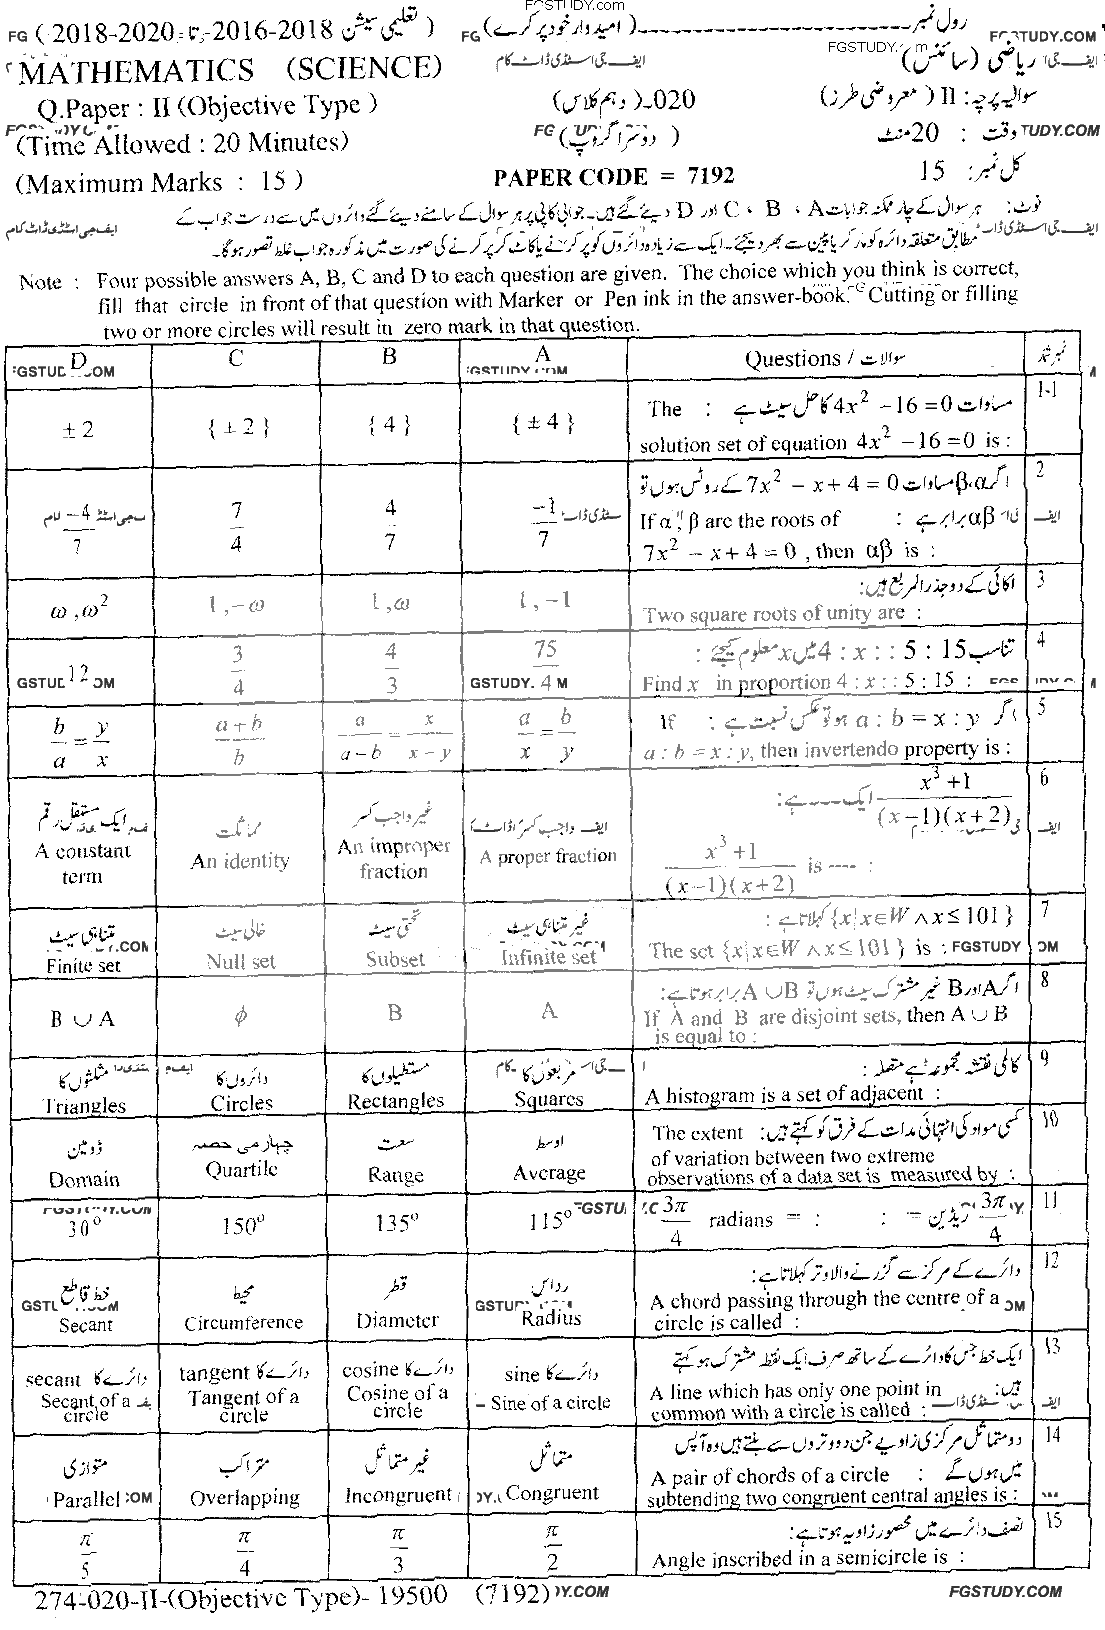 FGSTUDY.com
FG ( 2018-2020 تا 2016-2018 تعلیمی سیشن ) FG (امیدوار خود پر کرے) رول نمبر
FGSTUDY.COM
MATHEMATICS (SCIENCE) ایف جی اسٹڈی ڈاٹ کام ریاضی (سائنس)
Q.Paper : II (Objective Type ) 020۔(دہم کلاس) سوالیہ پرچہ : II (معروضی طرز)
(Time Allowed : 20 Minutes) (دوسرا گروپ) وقت : 20 منٹ
(Maximum Marks : 15 ) PAPER CODE = 7192 کل نمبر: 15
نوٹ: ہر سوال کے چار ممکنہ جوابات A ، B ، C اور D دیئے گئے ہیں۔ جوابی کاپی پر ہر سوال کے سامنے دیئے گئے دائروں میں سے درست جواب کے
مطابق متعلقہ دائرہ کو مارکر یا پین سے بھر دیجئے۔ ایک سے زیادہ دائروں کو پر کرنے یا کاٹ کر پر کرنے کی صورت میں مذکورہ جواب غلط تصور ہوگا۔
Note : Four possible answers A, B, C and D to each question are given. The choice which you think is correct,
fill that circle in front of that question with Marker or Pen ink in the answer-book. Cutting or filling
two or more circles will result in zero mark in that question.
D C B A Questions / سوالات نمبر شمار
مساوات 4x² − 16 = 0 کا حل سیٹ ہے : The 1-1
± 2 { ± 2 } { 4 } { ± 4 } solution set of equation 4x² − 16 = 0 is :
اگر α،β مساوات 7x² − x + 4 = 0 کے روٹس ہوں تو 2
αβ برابر ہے : If α , β are the roots of
−4/7 7/4 4/7 −1/7 7x² − x + 4 = 0 , then αβ is :
اکائی کے دو جذر المربع ہیں: 3
ω , ω² 1 , −ω 1 , ω 1 , −1 Two square roots of unity are :
تناسب 4 : x : : 5 : 15 میں x معلوم کیجئے : 4
12 3/4 4/3 75/4 Find x in proportion 4 : x : : 5 : 15 :
اگر a : b = x : y ہو تو عکس نسبت ہے : If 5
b/a = y/x a+b/b a/a−b x/x−y a/x = b/y a : b = x : y, then invertendo property is :
x³ +1/(x−1)(x+2) ایک ---- ہے : 6
ایک مستقل رقم مماثلت غیر واجب کسر واجب کسر
A constant term An identity An improper fraction A proper fraction x³ +1/(x−1)(x+2) is ---- :
{x|x∈W ∧ x≤ 101} کہلاتا ہے : 7
متناہی سیٹ خالی سیٹ تحتی سیٹ غیر متناہی سیٹ
Finite set Null set Subset Infinite set The set {x|x∈W ∧ x≤ 101} is : FGSTUDY
اگر A اور B غیر مشترک سیٹ ہوں تو A ∪ B برابر ہوتا ہے : 8
B ∪ A ϕ B A If A and B are disjoint sets, then A ∪ B
is equal to :
کالمی نقشہ مجموعہ ہے متصلہ : 9
مثلثوں کا دائروں کا مستطیلوں کا مربعوں کا
Triangles Circles Rectangles Squares A histogram is a set of adjacent :
کسی مواد کی انتہائی مدات کے فرق کو کہتے ہیں : The extent 10
ڈومین چہارمی حصہ سعت اوسط of variation between two extreme
Domain Quartile Range Average observations of a data set is measured by :
30° 150° 135° 115° 3π/4 radians = : : = ریڈین 3π/4 11
دائرے کے مرکز سے گزرنے والا وتر کہلاتا ہے : 12
خط قاطع محیط قطر رداس A chord passing through the centre of a
Secant Circumference Diameter Radius circle is called :
ایک خط جس کا دائرے کے ساتھ صرف ایک نقطہ مشترک ہو کہتے ہیں: 13
دائرے کا secant دائرے کا tangent دائرے کا cosine دائرے کا sine A line which has only one point in
Secant of a circle Tangent of a circle Cosine of a circle Sine of a circle common with a circle is called :
دو متماثل مرکزی زاویے جن دو وتروں سے بنتے ہیں وہ آپس 14
میں ہوں گے : A pair of chords of a circle
متوازی متراکب غیر متماثل متماثل
Parallel Overlapping Incongruent Congruent subtending two congruent central angles is :
نصف دائرے میں محصور زاویہ ہوتا ہے : 15
π/5 π/4 π/3 π/2 Angle inscribed in a semicircle is :
274-020-II-(Objective Type)- 19500 (7192) FGSTUDY.COM